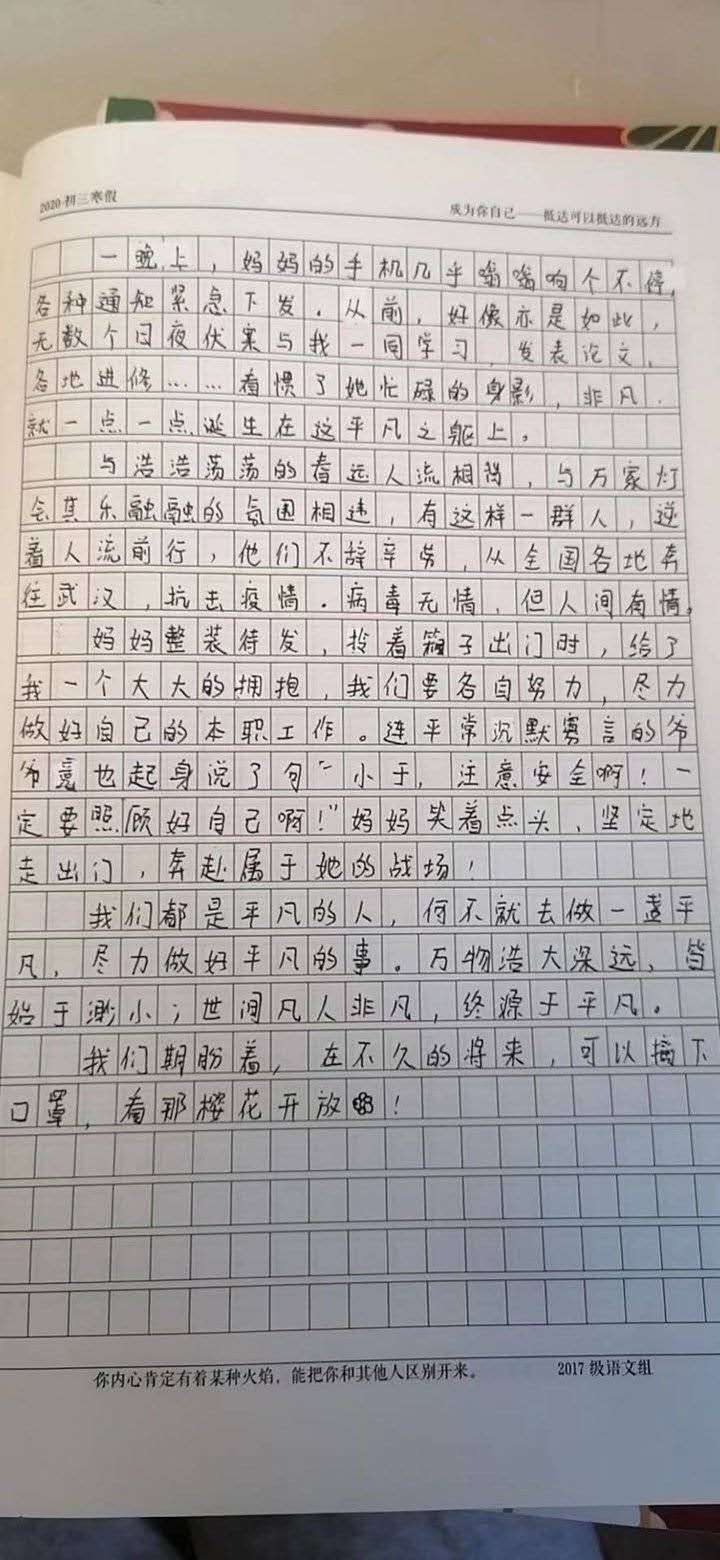 2020·初三寒假
成为你自己——抵达可以抵达的远方
一晚上，妈妈的手机几乎嗡嗡响个不停，
各种通知紧急下发。从前，好像亦是如此，
无数个日夜伏案与我一同学习，发表论文，
各地进修……看惯了她忙碌的身影，非凡，
就一点一点诞生在这平凡之躯上。
与浩浩荡荡的春运人流相背，与万家灯
会其乐融融的氛围相违，有这样一群人，逆
着人流前行，他们不辞辛劳，从全国各地奔
往武汉，抗击疫情。病毒无情，但人间有情。
妈妈整装待发，拎着箱子出门时，给了
我一个大大的拥抱，我们要各自努力，尽力
做好自己的本职工作。连平常沉默寡言的爷
爷竟也起身说了句“小于，注意安全啊！一
定要照顾好自己啊！”妈妈笑着点头，坚定地
走出门，奔赴属于她的战场！
我们都是平凡的人，何不就去做一盏平
凡，尽力做好平凡的事。万物浩大深远，皆
始于渺小；世间凡人非凡，终源于平凡。
我们期盼着，在不久的将来，可以摘下
口罩，看那樱花开放！
你内心肯定有着某种火焰，能把你和其他人区别开来。
2017 级语文组